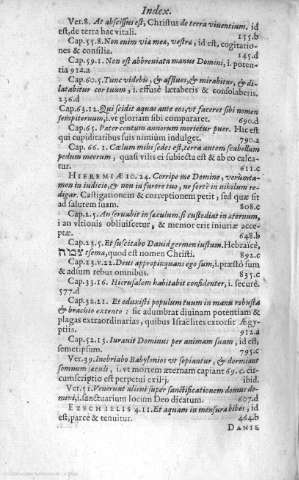 Index.
Ver.8. At abscissus est, Christus de terra viventium. id
est, de terra hac vitali. 155.b
Cap.55.8. Non enim via mea, vestra, id est, cogitatio-
nes & consilia. 145.d
Cap.59.1. Non est abbreviata manus Domini, i. poten-
tia 912.a
Cap.60.5. Tunc videbis, & afflues, & mirabitur, & di-
latabitur cor tuum, i. effusè lætaberis & consolaberis.
236.d
Cap.63.12. Qui scidit aquas ante eos, ut faceret sibi nomen
sempiternum, i. ut gloriam sibi compararet. 690.d
Cap.65. Puer centum annorum morietur puer. Hæc est
qui cupiditatibus suis nimium indulget. 790.a
Cap.66.1. Cælum mihi sedes est, terra autem scabellum
pedum meorum, quasi vilis ei subiecta est & ab eo calce-
tur. 611.c
HIEREMIÆ 10.24. Corripe me Domine, verumta-
men in iudicio, & non in furore tuo, ne fortè in nihilum re-
digar. Castigationem & correptionem petit, sed quæ sit
ad salutem suam. 808.c
Cap.2.5. An servabit in sæculum, si custodiet in æternum,
i an ultionis obliviscetur, & memor erit iniuriæ acce-
ptæ. 648.b
Cap.23.5. Et suscitabo David germen iustum. Hebraicè,
צמח sema, quod est nomen Christi. 892.c
Cap.23.v.22. Deus appropinquans ego sum, i. præsto sum
& adsum rebus omnibus. 835.c
Cap.33.16. Hierusalem habitabit confidenter, i. securè.
577.d
Cap.32.21. Et eduxisti populum tuum in manu robusta
& brachio extento: sic adumbrat divinam potentiam &
plagas extraordinarias, quibus Israëlites extorsit Ægy-
ptiis. 912.a
Cap.52.13. Iuravit Dominus per animam suam, id est,
semetipsum. 795.c
Ver.39. Inebriabo Babylonios ut sopiantur, & dormiant
somnum, i. ut mortem æternam capiant 69. c.
cumscriptio est perpetui exitij. ibid.
Ver.51. Venerunt alieni super sanctificationem domus do-
mini, i. sanctuarium locum Deo dicatum. 607.d
EZECHIELIS 4.11. Et aquam in mensura bibes, id
est, parcè & tenuiter. 464.b
DANIE